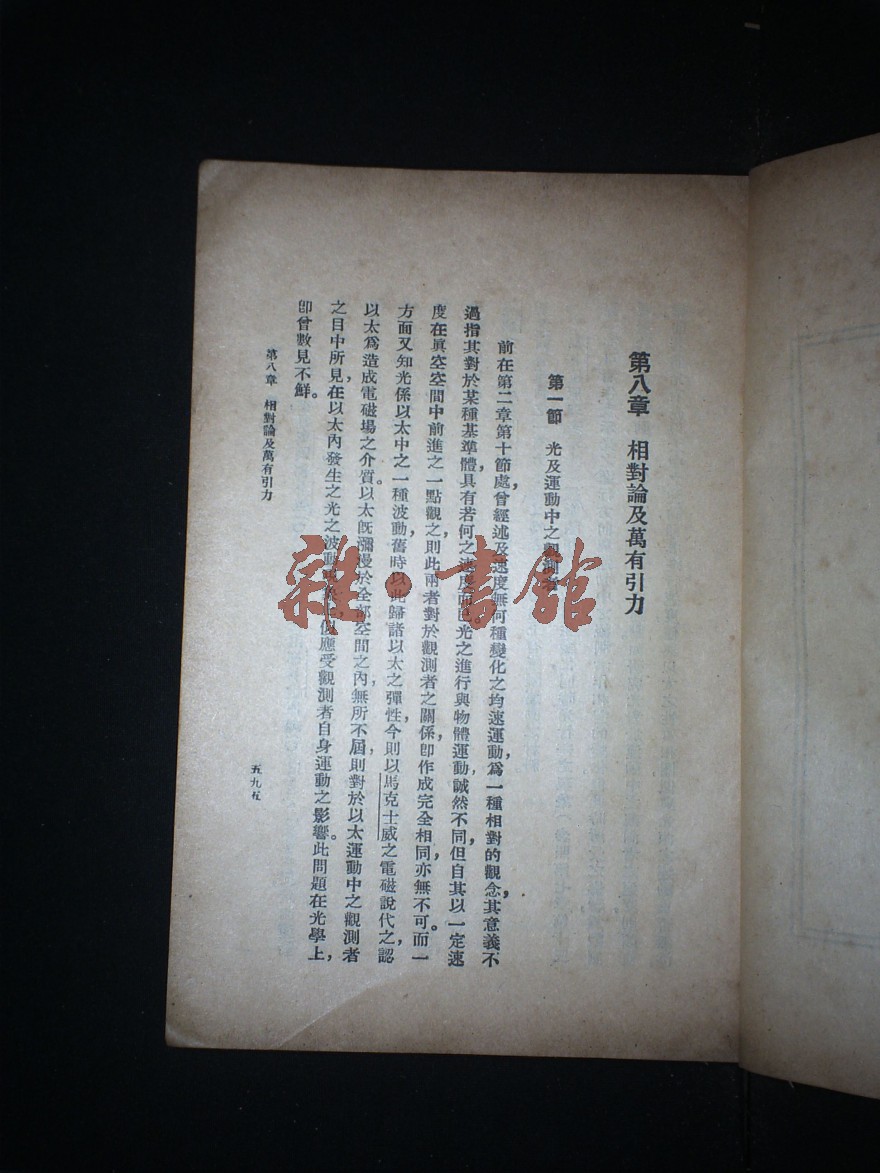 第八章　相對論及萬有引力
第一節　光及運動中之觀測者
前在第二章第十節處，曾經述及速度無何種變化之均速運動，爲一種相對的觀念，其意義不
過指其對於某種基準體，具有若何之速度而已。光之進行與物體運動，誠然不同，但自其以一定速
度在眞空空間中前進之一點觀之，則此兩者對於觀測者之關係，卽作成完全相同，亦無不可。而一
方面又知光係以太中之一種波動，舊時以此歸諸以太之彈性，今則以馬克士威之電磁說代之，認
以太爲造成電磁場之介質。以太旣瀰漫於全部空間之內，無所不屆，則對於以太運動中之觀測者
之目中所見，在以太內發生之光之波動，似應受觀測者自身運動之影響。此問題在光學上，
卽曾數見不鮮。
第八章　相對論及萬有引力
五九五
雜·書館